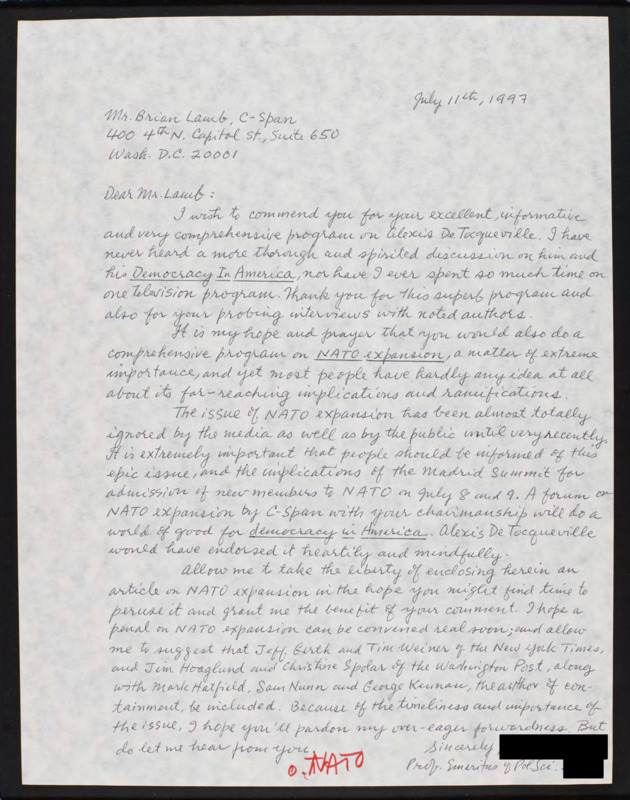 July 11th, 1997
Mr. Brian Lamb, C-Span
400 4th N. Capitol St., Suite 650
Wash. D.C. 20001
Dear Mr. Lamb:
I wish to commend you for your excellent, informative
and very comprehensive program on Alexis De Tocqueville. I have
never heard a more thorough and spirited discussion on him and
his Democracy In America, nor have I ever spent so much time on
one Television program. Thank you for this superb program and
also for your probing interviews with noted authors.
It is my hope and prayer that you would also do a
comprehensive program on NATO expansion, a matter of extreme
importance, and yet most people have hardly any idea at all
about its far-reaching implications and ramifications.
The issue of NATO expansion has been almost totally
ignored by the media as well as by the public until very recently.
It is extremely important that people should be informed of this
epic issue, and the implications of the Madrid Summit for
admission of new members to NATO on July 8 and 9. A forum on
NATO expansion by C-Span with your chairmanship will do a
world of good for democracy in America. Alexis De Tocqueville
would have endorsed it heartily and mindfully.
Allow me to take the liberty of enclosing herein an
article on NATO expansion in the hope you might find time to
peruse it and grant me the benefit of your comment. I hope a
penal on NATO expansion can be convened real soon; and allow
me to suggest that Jeff, Gerth and Tim Weiner of the New York Times,
and Jim Hoagland and Christine Spolar of the Washington Post, along
with Mark Hatfield, Sam Nunn and George Kennan, the author of con-
tainment, be included. Because of the timeliness and importance of
the issue, I hope you'll pardon my over-eager forwardness. But
do let me hear from you.
Sincerely
Prof. Emeritus of Pol Sci.
o. NATO